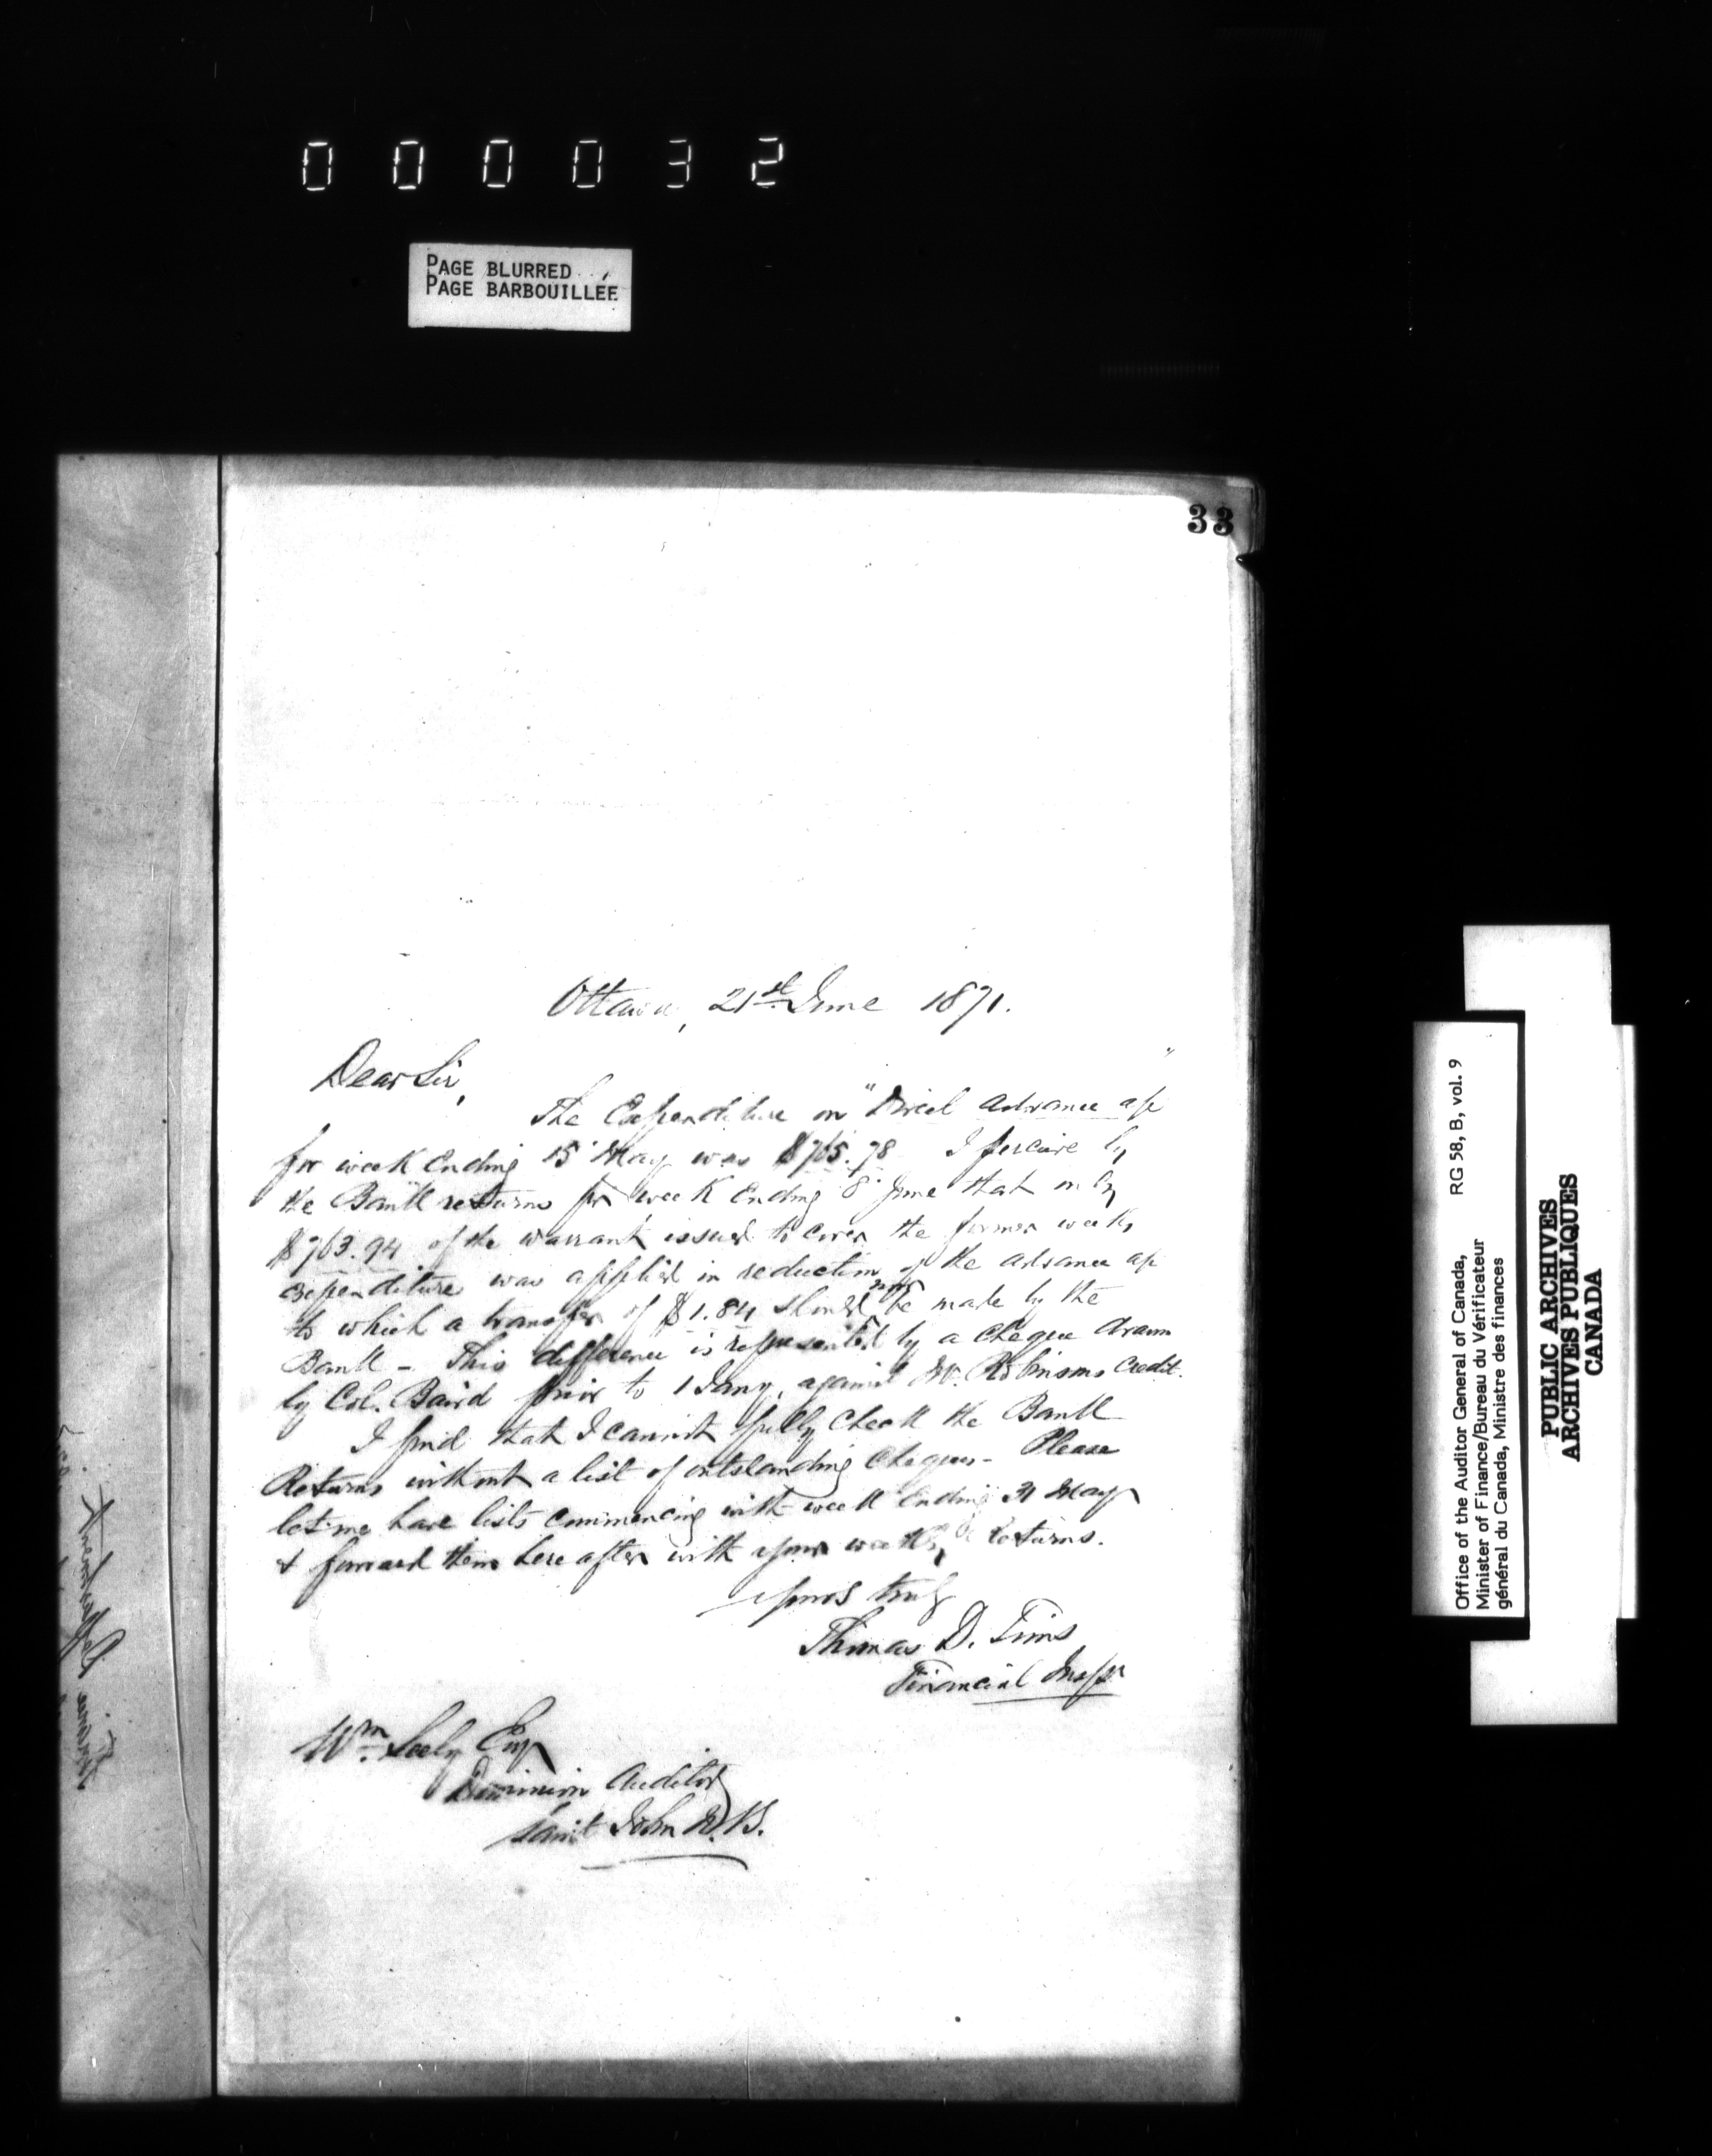 0 0 0 0 3 2
PAGE BLURRED
PAGE BARBOUILLÉE
33
Ottawa, 21st June 1871.
Dear Sir,
The Expenditure on "Direct Advance a/c"
for week ending 15 May was $765.78 I perceive by
the Bank returns for week ending 8 June that only
$763.94 of the warrant issued to cover the former weeks
expenditure was applied in reduction of the advance a/c
to which a transfer of $1.84 should now be made by the
Bank - This difference is represented by a cheque drawn
by Col. Baird prior to 1 Jany. against Mr. Robinsons Credit.
I find that I cannot fully check the Bank
Returns without a list of outstanding cheques - Please
let me have lists commencing with week ending 31 May
& forward them hereafter with your weekly returns.
Yours truly
Thomas D. Tims
Financial Inspr
Wm. Seely Esq
Dominion Auditor
Saint John N.B.
Finance Department
Office of the Auditor General of Canada, RG 58, B, vol. 9
Minister of Finance/Bureau du Vérificateur
général du Canada, Ministre des finances
PUBLIC ARCHIVES
ARCHIVES PUBLIQUES
CANADA